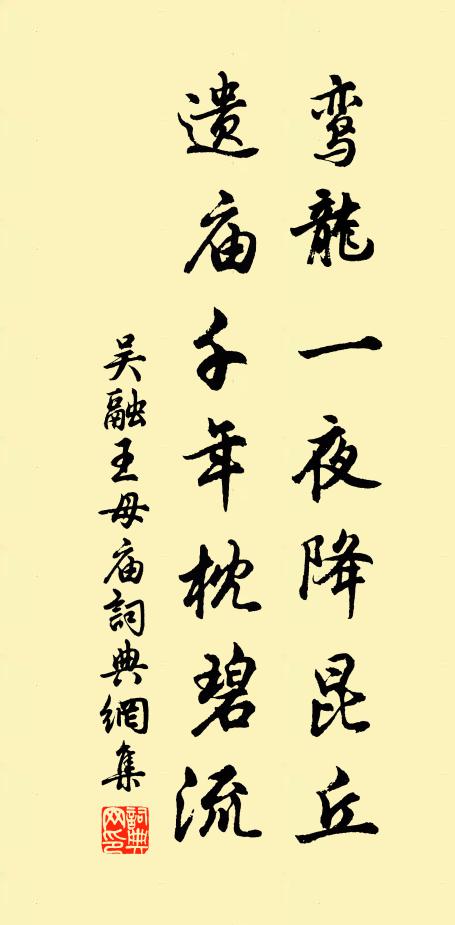 鸾龍一夜降昆丘
遗庙千年枕碧流
吴融王母庙詞典網集
詞典网印